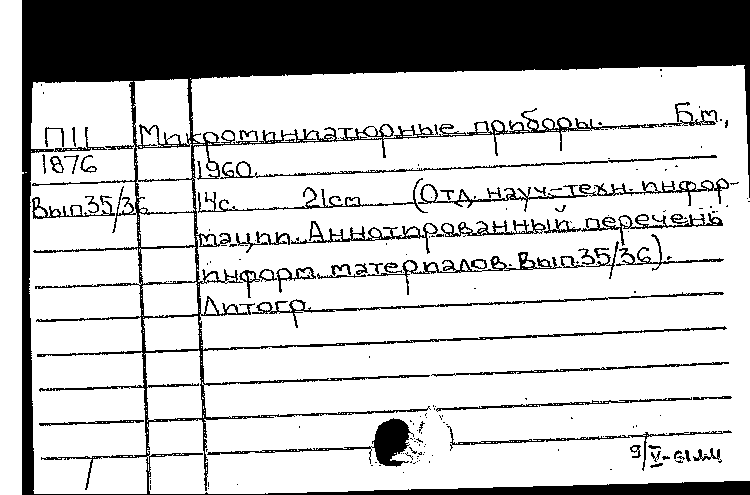 П11 Микроминиатюрные приборы. Б.м.,
1876 1960.
Вып.35/36 14с. 21см (Отд. науч.-техн. инфор-
мации. Аннотированный перечень
информ. материалов. Вып.35/36).
Литогр.
9/V-61